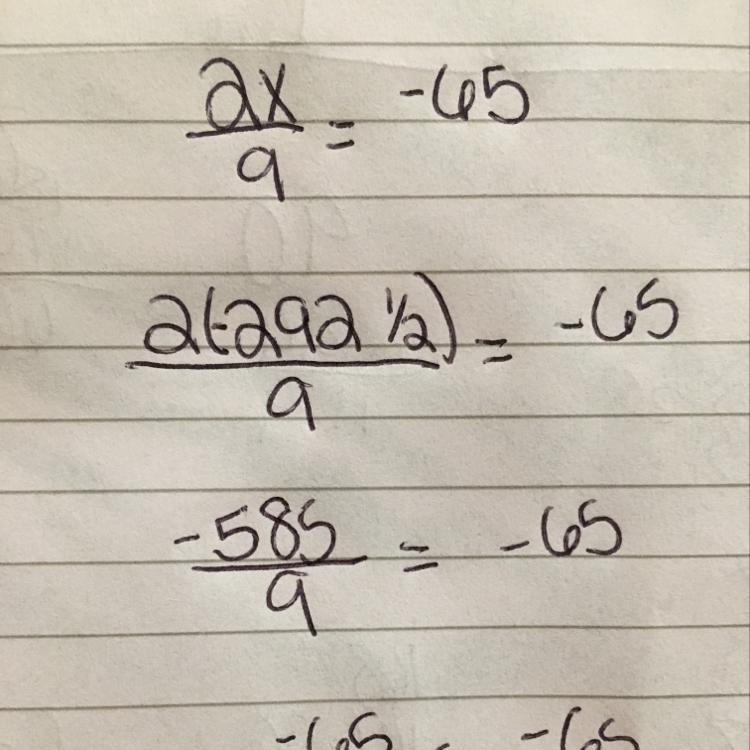 2x/9 = -65
2(-292 1/2)/9 = -65
-585/9 = -65
-65 = -65